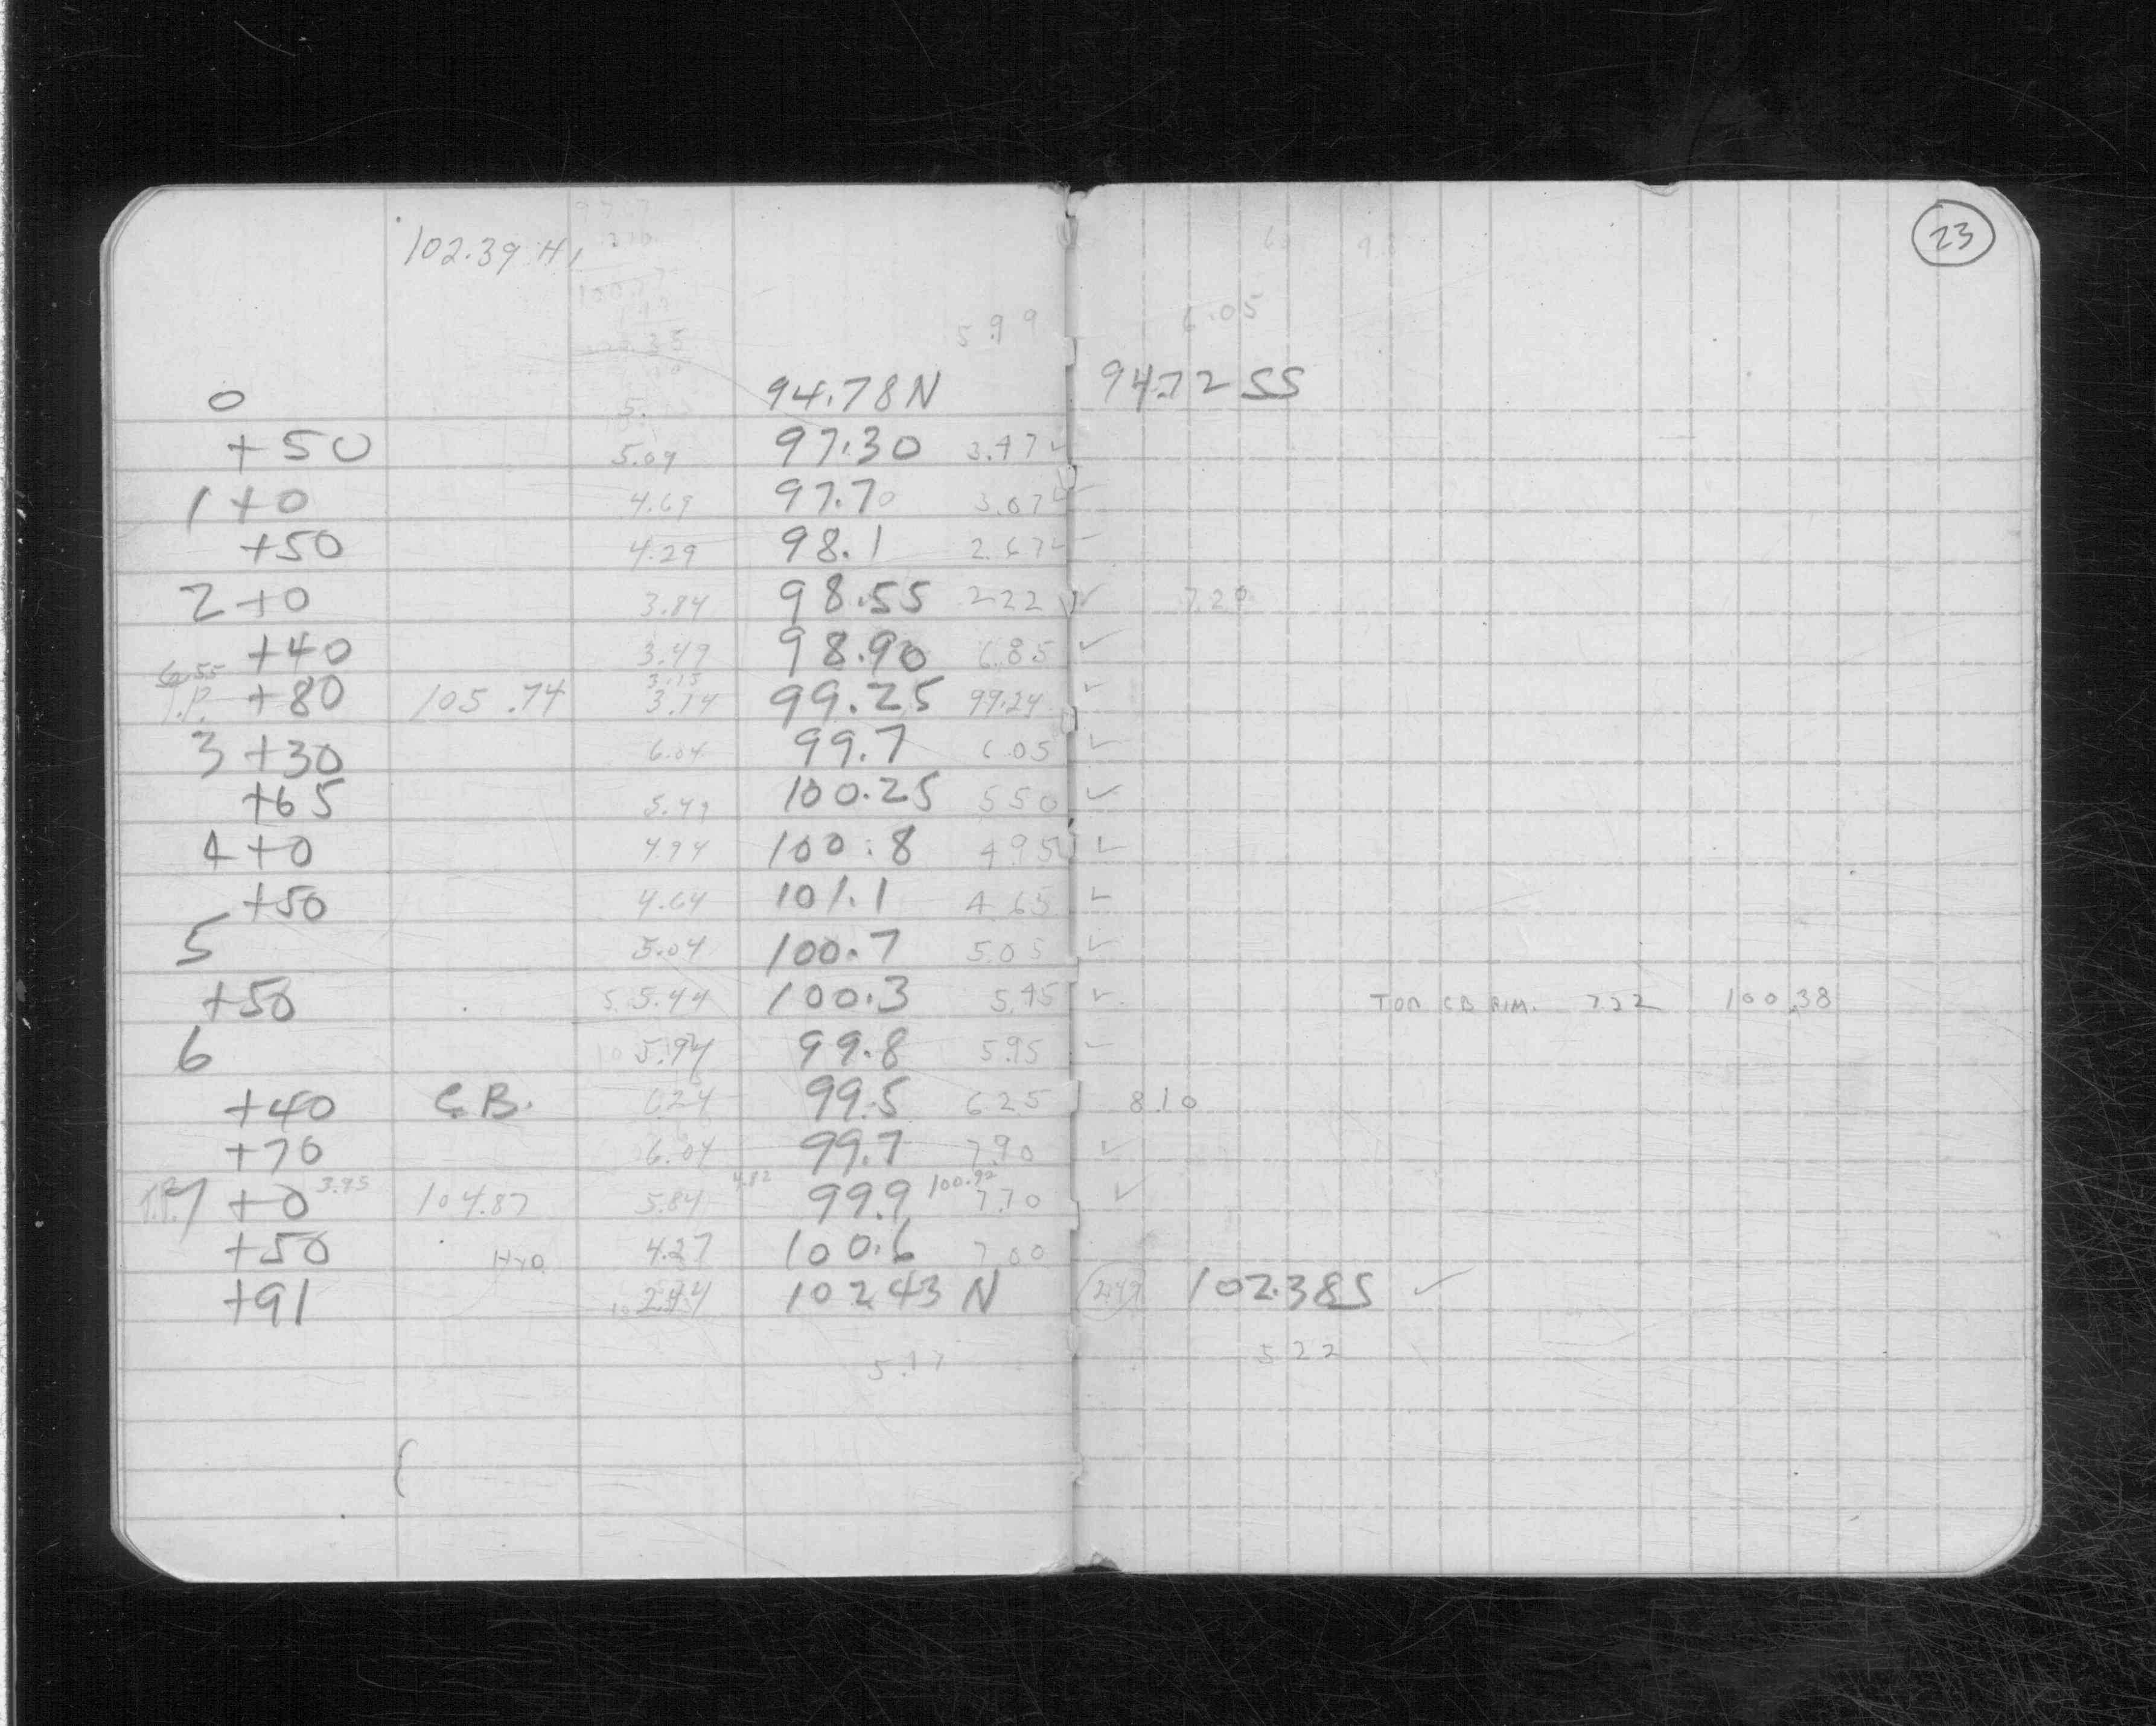 23
102.39 H,
5.99 6.05
0 94.78 N 94.72 SS
+50 5.09 97.30 3.47 ✓
1+0 4.69 97.70 3.07 ✓
+50 4.29 98.1 2.67 ✓
2+0 3.84 98.55 2.22 ✓ 7.20
+40 3.49 98.90 6.85 ✓
6.55 3.15
T.P. +80 105.74 3.14 99.25 99.24 ✓
3+30 6.04 99.7 6.05 ✓
+65 5.49 100.25 5.50 ✓
4+0 4.94 100.8 4.95 ✓
+50 4.64 101.1 4.65 ✓
5 5.04 100.7 5.05 ✓
+50 5.44 100.3 5.45 ✓ TOP CB RIM. 7.22 100.38
6 5.94 99.8 5.95 ✓
+40 C.B. 6.24 99.5 6.25 8.10
+70 6.04 99.7 7.90 ✓
T.P. 7+0 3.95 104.87 5.84 4.82 99.9 100.92 7.70 ✓
+50 4.27 100.6 7.00
+91 2.44 102.43 N 2.49 102.38 S ✓
5.17 5.22